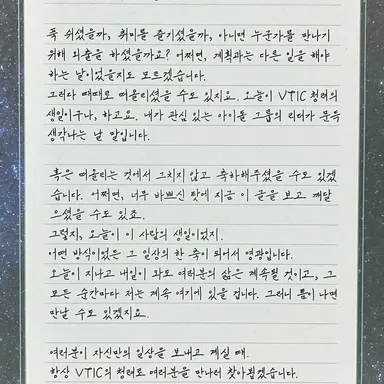 푹 쉬셨을까, 취미를 즐기셨을까, 아니면 누군가를 만나기
위해 외출을 하셨을까요? 어쩌면, 계획과는 다른 일을 해야
하는 날이었을지도 모르겠습니다.
그러다 때때로 떠올리셨을 수도 있지요. 오늘이 VTIC 청려의
생일이구나, 하고요. 내가 관심 있는 아이돌 그룹의 리더가 문득
생각나는 날 말입니다.
혹은 떠올리는 것에서 그치지 않고 축하해주셨을 수도 있겠
습니다. 어쩌면, 너무 바쁘신 탓에 지금 이 글을 보고 깨달
으셨을 수도 있죠.
그렇지, 오늘이 이 사람의 생일이었지.
어떤 방식이었든 그 일상의 한 축이 되어서 영광입니다.
오늘이 지나고 내일이 와도 여러분의 삶은 계속될 것이고, 그
모든 순간마다 저는 계속 여기에 있을 겁니다. 그러니 틈이 나면
만날 수도 있겠지요.
여러분이 자신만의 일상을 보내고 계실 때.
항상 VTIC의 청려로 여러분을 만나러 찾아뵙겠습니다.